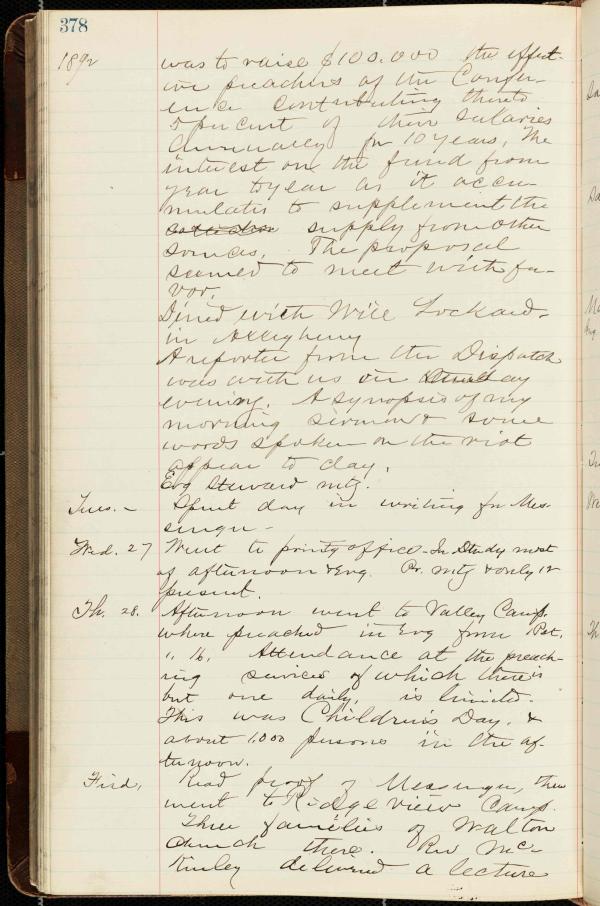 378
1892 was to raise $100.000 the effect-
ive preachers of the Confer-
ence contributing thereto
5 percent of their salaries
annually for 10 years. The
interest on the fund from
year to year as it accu-
mulates to supplement the
supply from other
sources. The proposal
seemed to meet with fa-
vor.
Dined with Will Lockard
in Allegheny
A reporter from the Dispatch
was with us on Sunday
evening. A synopsis of my
morning sermon & some
words spoken on the riot
appear to day.
Evg Steward mtg.
Tues. - Spent day in writing for Mes-
senger -
Wed. 27 Went to printg office. In Study most
of afternoon & Evg. Pr. mtg & only 12
present.
Th. 28. Afternoon went to Valley Camp.
where preached in Evg from 1 Pet.
" 16. Attendance at the preach-
ing services of which there is
but one daily, is limited.
This was Children's Day. &
about 1.000 persons in the af-
ternoon.
Frid. Read proof of Messenger, then
went to Ridge View Camp.
Three families of Walton
Church there. Rev Mc-
Kinley delivered a lecture